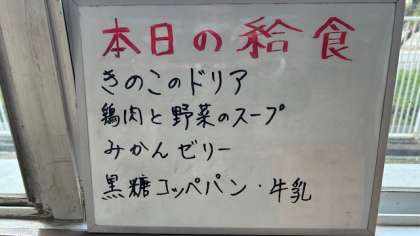 本日の給食
きのこのドリア
鶏肉と野菜のスープ
みかんゼリー
黒糖コッペパン・牛乳